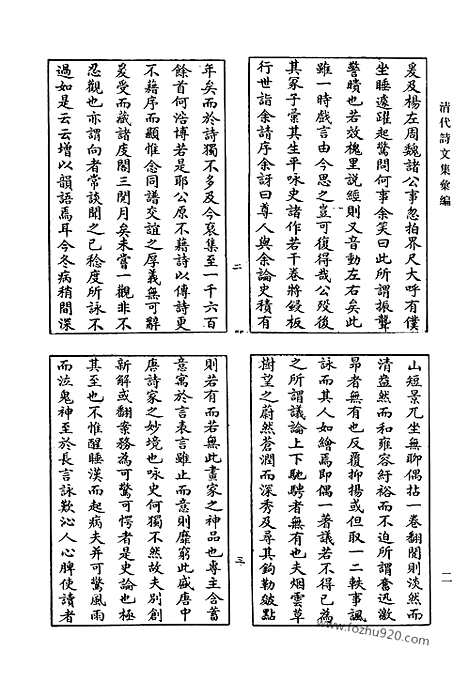 清代詩文集彙編
一一
爰及楊左周魏諸公事忽拍界尺大呼有僕
坐睡遽躍起驚問何事余笑曰此所謂振聾
警聵也若效槐里說經則又音動左右矣此
雖一時戲言由今思之豈可復得哉公歿後
其冢子彚其生平咏史諸作若干卷將鋟板
行世詣余請序余訝曰尊人與余論史積有
二
年矣而於詩獨不多及今裒集至一千六百
餘首何浩博若是耶公原不藉詩以傳詩更
不藉序而顯惟念同譜交誼之厚義無可辭
爰受而藏諸庋閣三閱月矣未嘗一觀非不
忍觀也亦謂向者常談聞之已稔度所詠不
過如是云云增以韻語焉耳今冬病稍間深
山短景兀坐無聊偶拈一卷翻閱則淡然而
清盎然而和雍容紆裕而不迫所謂奮迅激
昂者無有也反覆抑揚或但取一二軼事諷
詠而其人如繪焉即偶一著議若不得已為
之所謂議論上下馳騁者無有也夫烟雲草
樹望之蔚然蒼潤而深秀及尋其鉤勒皴點
三
則若有而若無此畫家之神品也專主含蓄
意寓於言表言雖止而意則靡窮此盛唐中
唐詩家之妙境也咏史何獨不然故夫別創
新解或翻案務為可驚可愕者是史論也極
其至也不惟醒睡漢而起病夫并可驚風雨
而泣鬼神至於長言詠歎沁人心脾使讀者
www.fozhu920.com